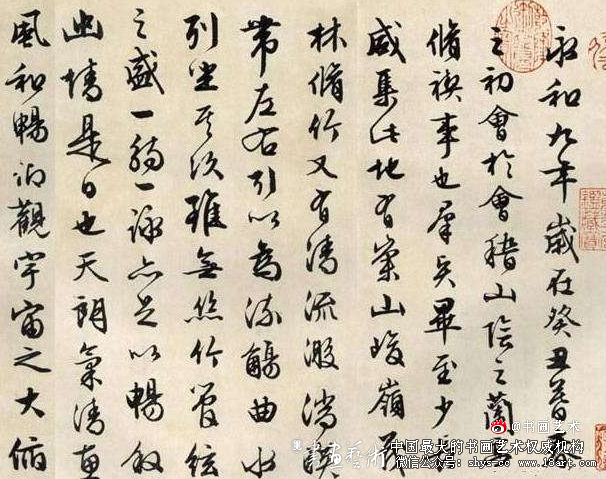 永和九年歲在癸丑暮春
之初會於會稽山陰之蘭亭
脩禊事也羣賢畢至少長
咸集此地有崇山峻嶺茂
林脩竹又有清流激湍暎
帶左右引以為流觴曲水
列坐其次雖無絲竹管絃
之盛一觴一詠亦足以暢敘
幽情是日也天朗氣清惠
風和暢仰觀宇宙之大俯
書畫藝術
@书画艺术
中国最大的书画艺术权威机构
微信公众号：shys-cc www.18art.com